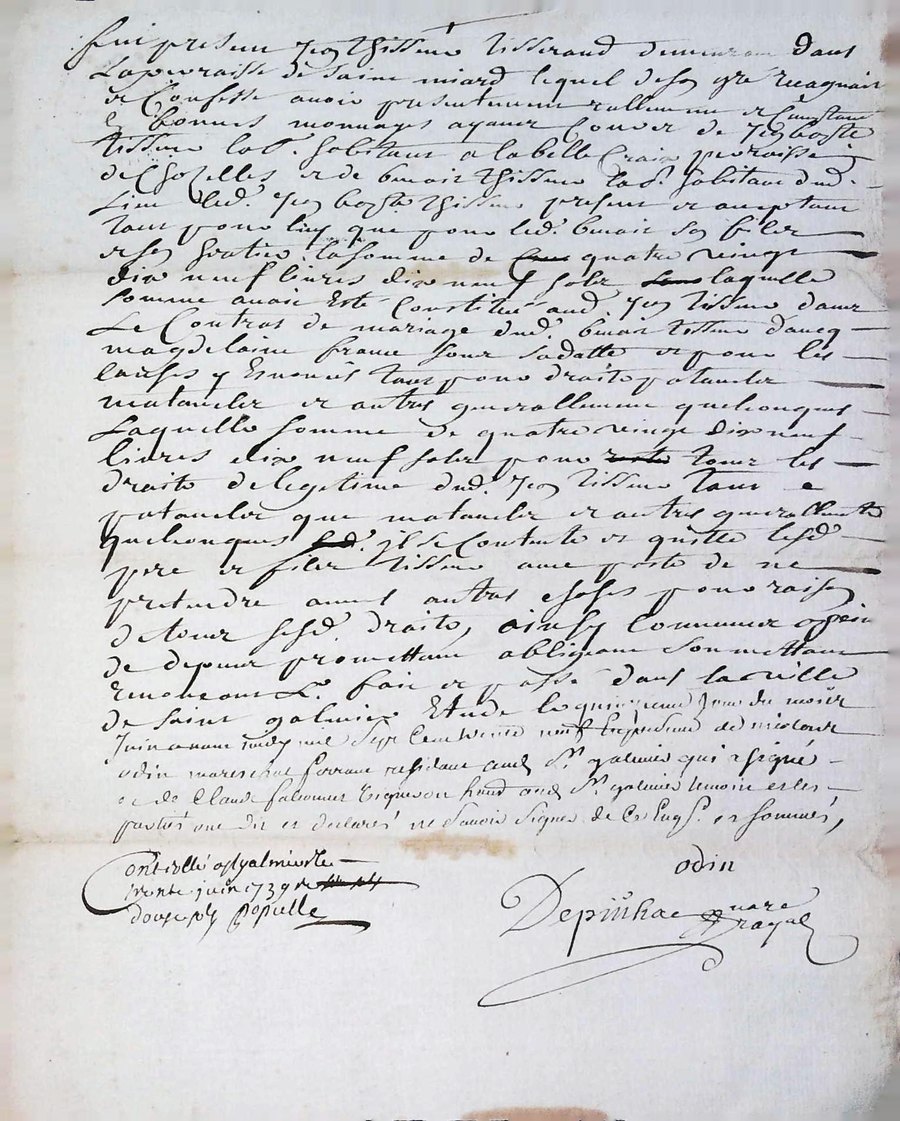 fut present Jean thissier tisserand demeurant dans
La parroisse de saint miard lequel de son gré recognait
et Confesse avoir presentement reellement et Constant
bonnes monnoyes ayant Cour et de Jean bapte
tissier lab.r habitant a la belle Croix parroisse
de Chazelles et de benoit thissier lab.r habitant dud.
Lieu led. Jean bapte thissier present et acceptant
tant pour luy que pour led. benoit son filz
et son hentier la somme de quatre vingt
dix neuf livres dix neuf solz laquelle
somme avoit esté Constitué aud. Jean tissier dans
Le Contrat de mariage dud. benoit tissier avecq
magdelaine france sour sadatte et pour les
causes y Enoncés tant pour droits patanelz
matanelz et autres generallement quelconques
Laquelle somme de quatre vingt dix neuf
livres dix neuf solz pour tous les
droits de legitime dud. Jean tissier tant
patanelz que matanelz et autres generallements
quelconques il se Contente et quitte lesd.
pere et filz tissier avec pacte de ne
pretendre aucuns autres choses pour raison
de tous sesd. droits, ainsy Convenu a peine
de depens promettant obligeant soumettant
renonceant &.a fait et passé dans la ville
de saint galmier Etude le quinzieme Jour du mois
Juin avant midy mil sept Cent trente neuf En presence de
odin mareschal ferrant residant aud. St. galmier qui a signé
et de Claude aud. St. galmier temoin et les
parties ont dit et declarés ne savoir signer de Ce Enq.s et sommés,
Controllé a St galmier le
trente juin 1739 re
douze s.
odin
Depinhac nore
Royal